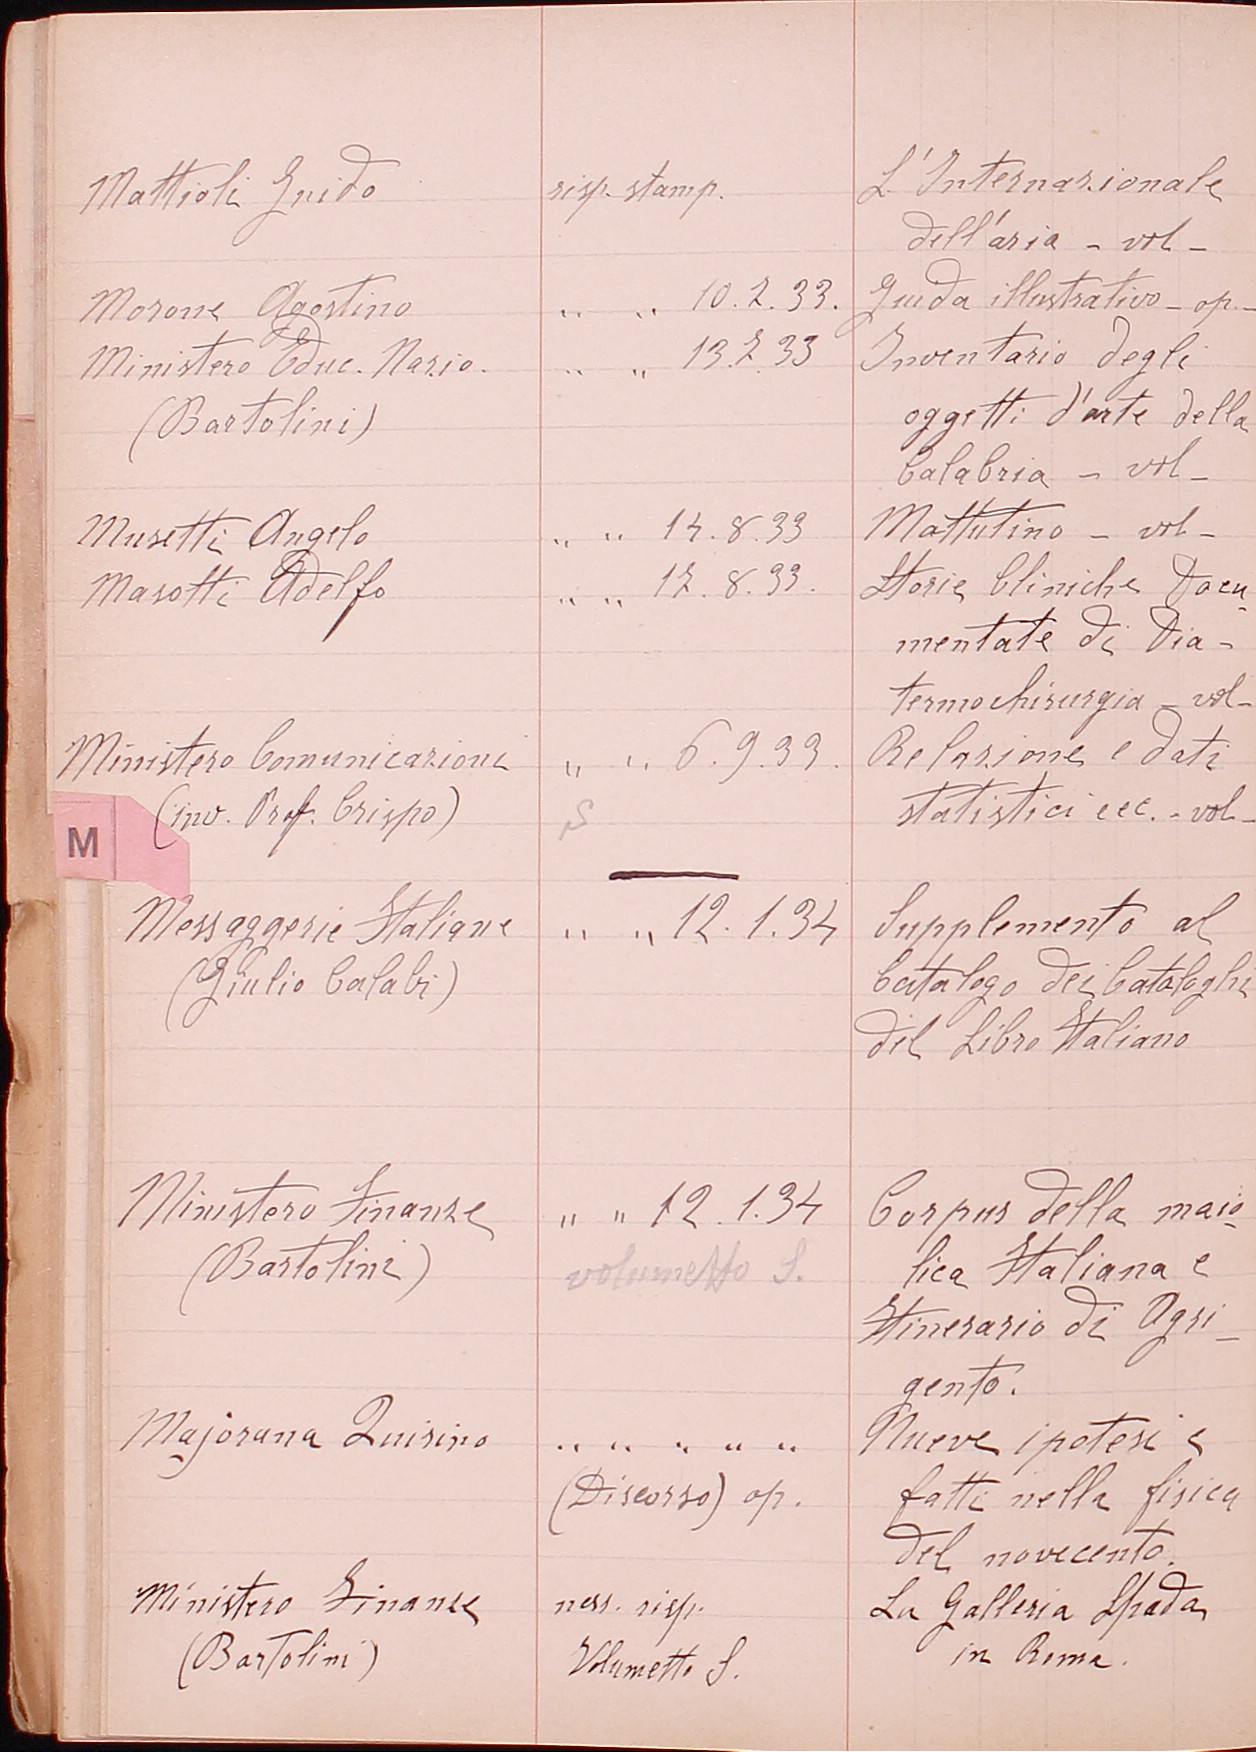 Mattioli Guido risp. stamp. L'Internazionale
dell'aria - vol -
Morone Agostino " " 10.2.33. Guida illustrativo - op. -
Ministero Educ. Nazio. " " 13.2.33 Inventario degli
(Bartolini) oggetti d'arte della
Calabria - vol -
Musetti Angelo " " 14.8.33 Mattutino - vol -
Masotti Adelfo " " 17.8.33. Storie Cliniche Docu-
mentate di Dia-
termochirurgia - vol -
Ministero Comunicazioni " " 6.9.33. Relazione e dati
(inv. Prof. Crispo) S statistici ecc. - vol -
M
Messaggerie Italiane " " 12.1.34 Supplemento al
(Giulio Calabi) Catalogo dei Cataloghi
del Libro Italiano
Ministero Finanze " " 12.1.34 Corpus della maio-
(Bartolini) volumetto S. lica Italiana e
Itinerario di Agri-
gento.
Majorana Quirino " " " " " Nueve ipotesi e
(Discorso) op. fatti nella fisica
del novecento.
Ministero Finanze ness. risp. La Galleria Spada
(Bartolini) Volumetto S. in Roma.